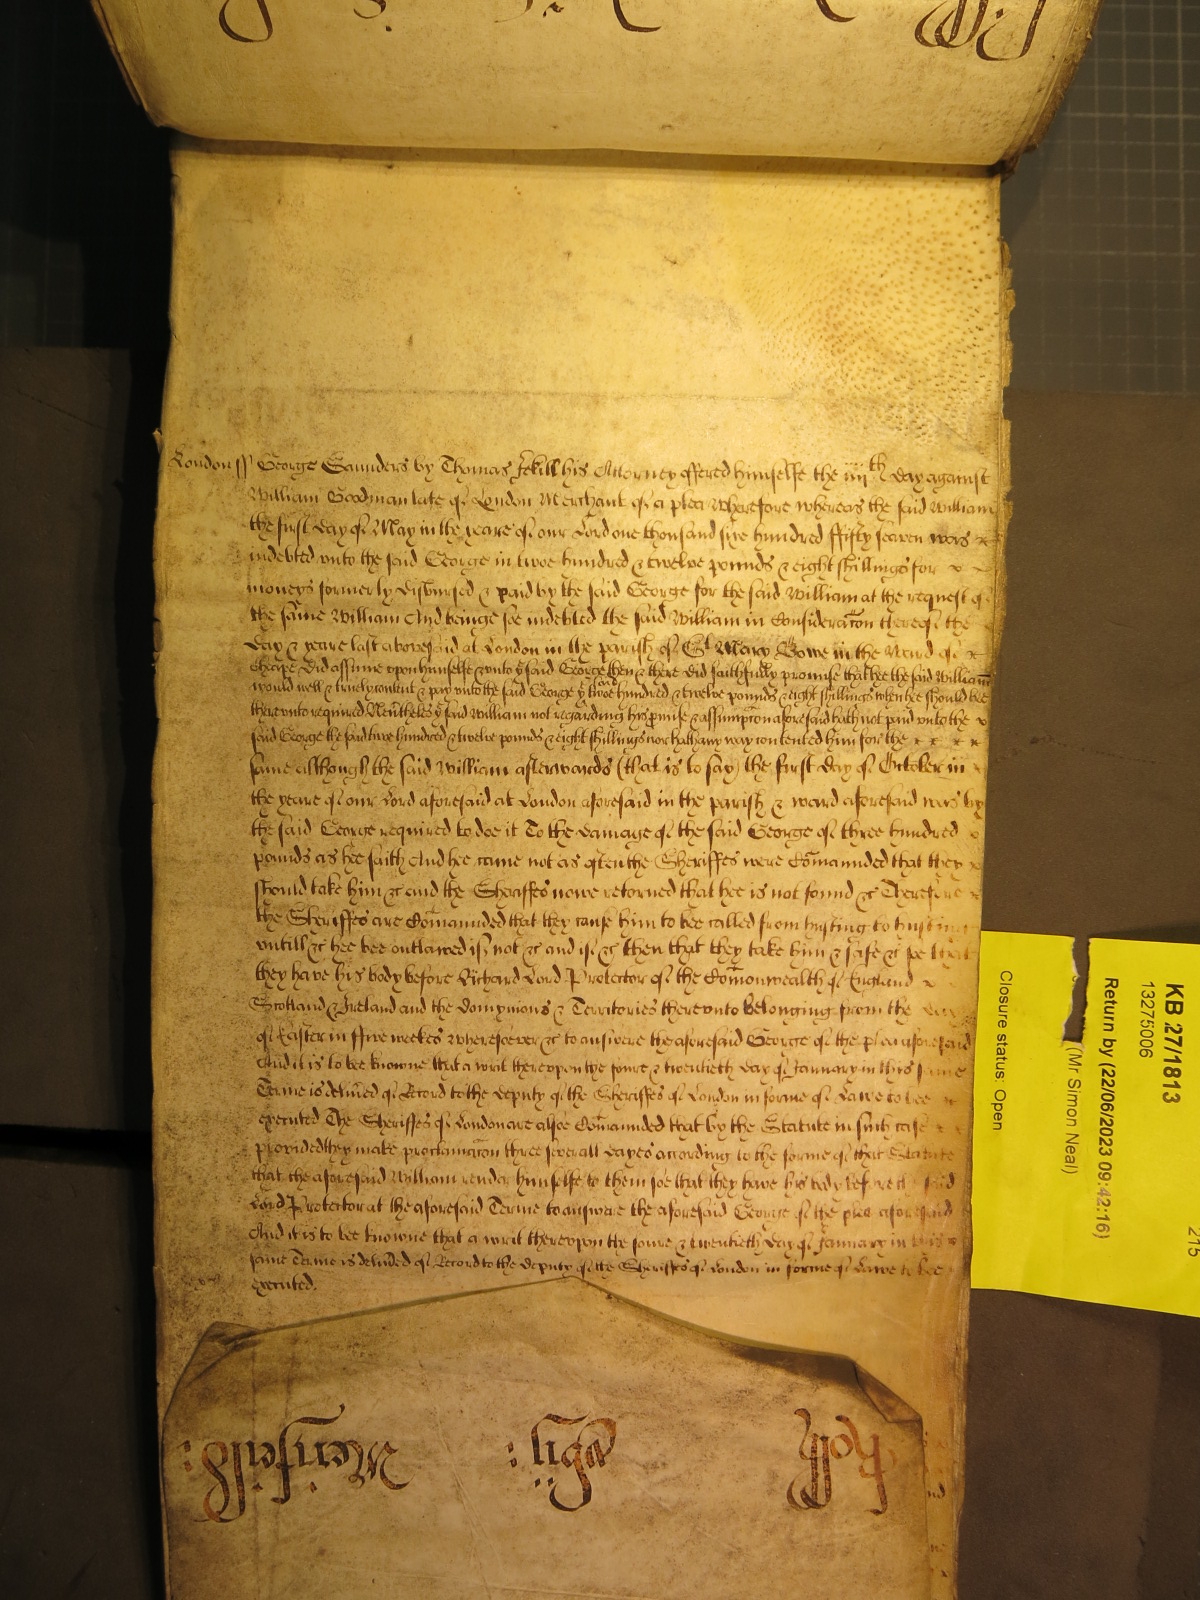 London ss George Saunders by Thomas Jekill his Attorney offered himselfe the iiijth day against
William Goodman late of London Merchant of a plea wherefore whereas the said William
the first day of May in the yeare of our Lord one thousand sixe hundred fifty seaven was
indebted vnto the said George in twoe hundred & twelve pounds & eight shillings for
moneys formerly disbursed & paid by the said George for the said William at the request of
the same William And beinge soe indebted the said William in Consideracon thereof the
day & yeare last abovesaid at London in the parish of St Mary Bowe in the Ward of
Cheape did assume vpon himselfe & vnto ye said George then & there did faithfully promise that hee the said William
would well & truely content & pay vnto the said George ye said twoe hundred & twelve pounds & eight shillings when hee should bee
therevnto required Nevtheles ye said William not regarding his pmise & assumpcon aforesaid hath not paid vnto the
said George the said two hundred & twelve pounds & eight shillings nor hath any way contented him for the
same although the said William afterwards (that is to say) the first day of October in
the yeare of our Lord aforesaid at London aforesaid in the parish & ward aforesaid was by
the said George required to doe it To the damage of the said George of three hundred
pounds as hee saith And hee came not As often the Sheriffes were Comaunded that they
should take him &c and the Sheriffes nowe retorned that hee is not found &c Therefore
the Sheriffes are Comaunded that they cause him to bee called from husting to husting
vntill &c hee bee outlawed if not &c and if &c then that they take him & safe &c soe that
they have his body before Richard Lord Protector of the Comonwealth of England
Scotland & Ireland and the dominions & Territories therevnto belonging from the day
of Easter in five weekes wheresoever &c to answere the aforesaid George of the plea aforesaid
And it is to be knowne that a writ therevpon the foure & twentieth day of January in this same
Terme is delived of Record to the deputy of the Sheriffes of London in forme of Lawe to bee
executed The Sheriffes of London are alsoe Comaunded that by the Statute in such case
provided they make proclamacon three severall dayes according to the forme of that Statute
that the aforesaid William render himselfe to them soe that they have his body before the said
Lord Protector at the aforesaid Terme to answere the aforesaid George of the plea aforesaid
And it is to bee knowne that a writ therevpon the foure & twentieth day of January in this
same Terme is delived of Record to the deputy of the Sheriffes of London in forme of Lawe to bee
executed.
Rolls
Wenfeild:
KB 27/1813
13275006
Return by (22/06/2023 09:42:16)
(Mr Simon Neal)
Closure status: Open
215